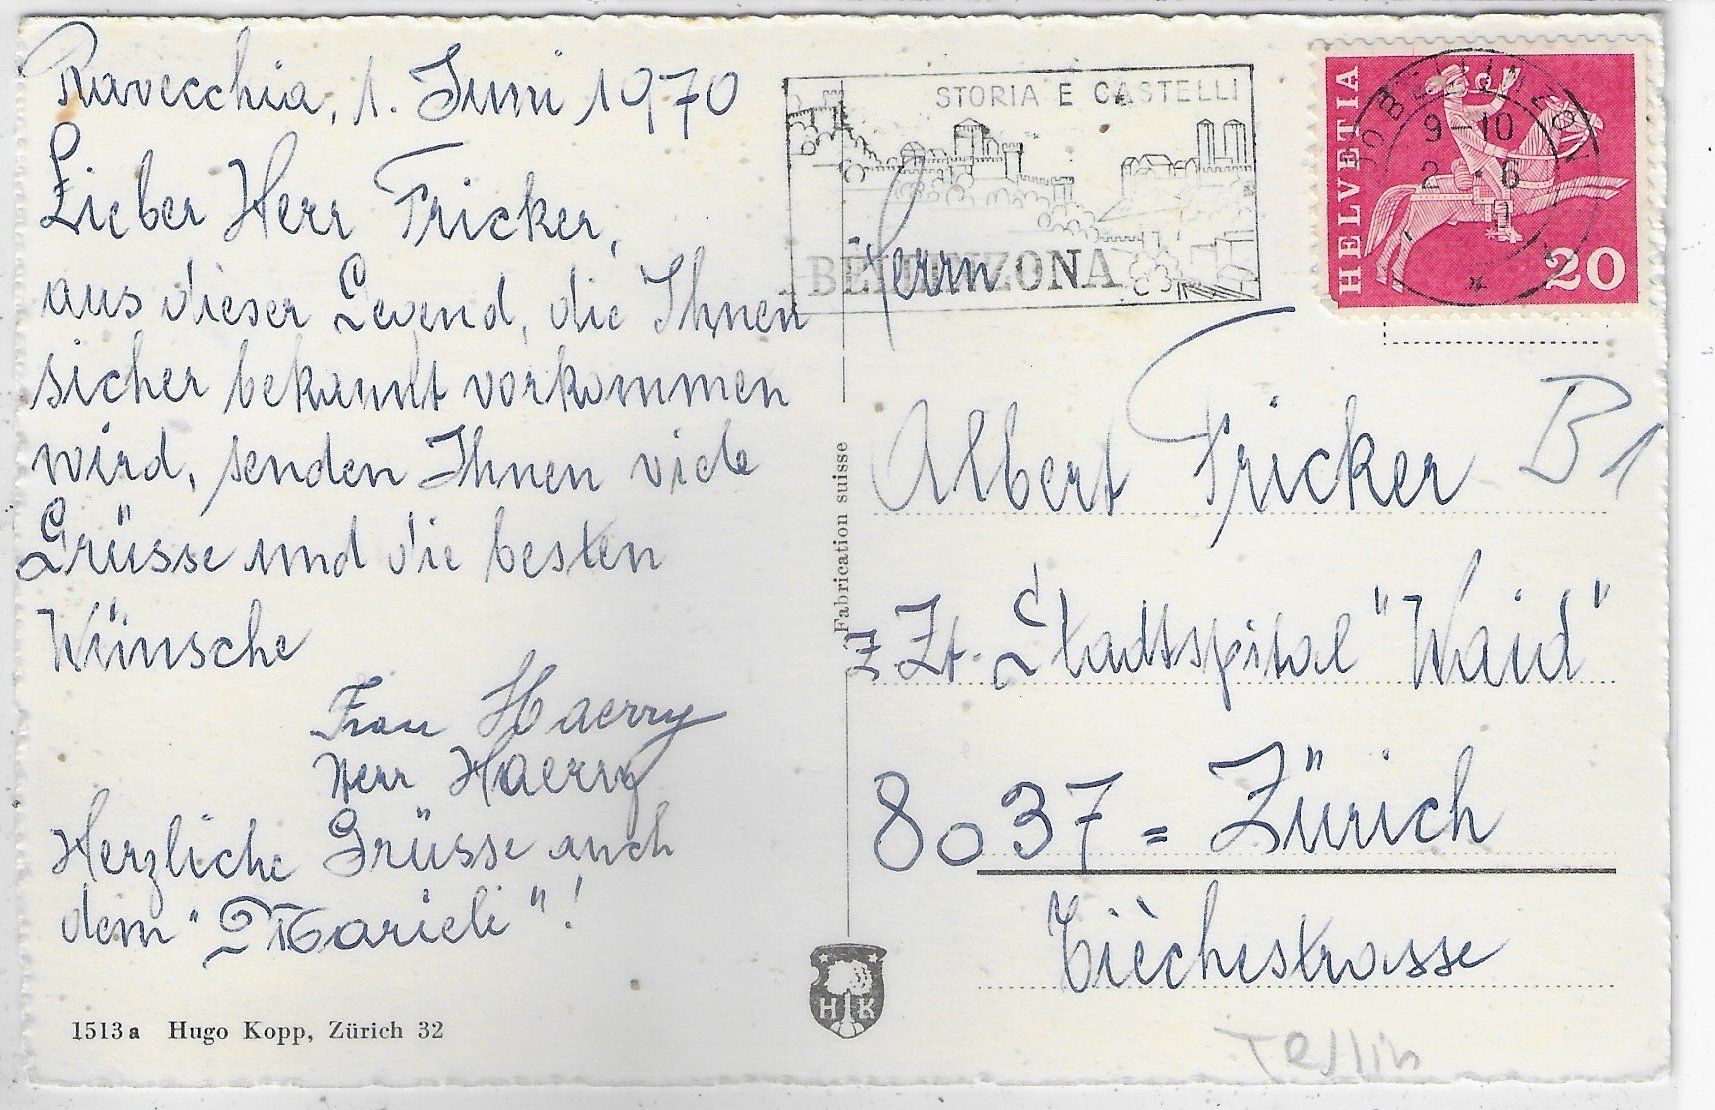 Ravecchia, 1. Juni 1970
Lieber Herr Fricker,
aus dieser Gegend, die Ihnen
sicher bekannt vorkommen
wird, senden Ihnen viele
Grüsse und die besten
Wünsche
Frau Haerry
Herr Haerry
Herzliche Grüsse auch
dem "Marieli"!
1513a Hugo Kopp, Zürich 32
Fabrication suisse
HK
STORIA E CASTELLI
BELLINZONA
HELVETIA
20
BELLINZONA
9-10
2.6
Herrn
Albert Fricker B1
z. Zt. Stadtspital "Waid"
8037 = Zürich
Tièchestrasse
Tessin